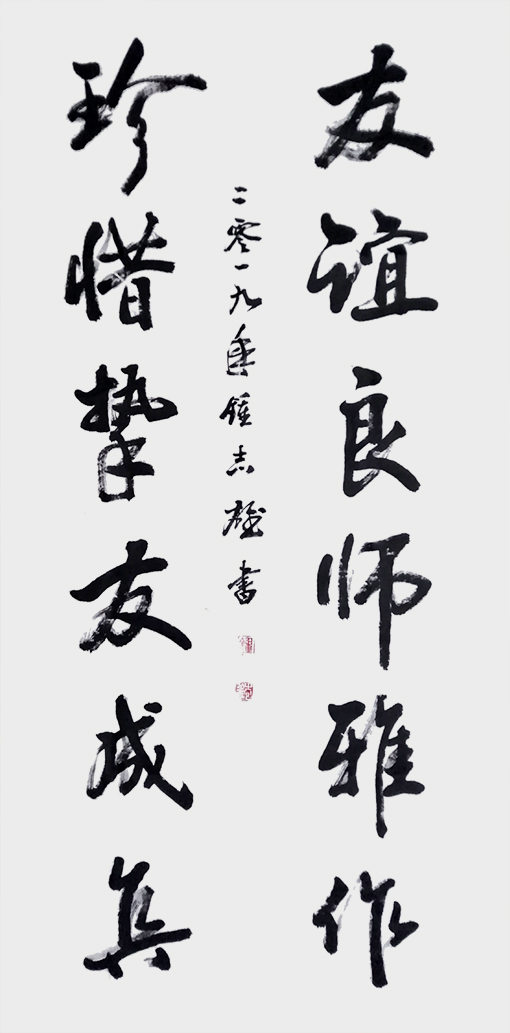 友谊良师雅作
珍惜挚友成真
二零一九年锺志雄书